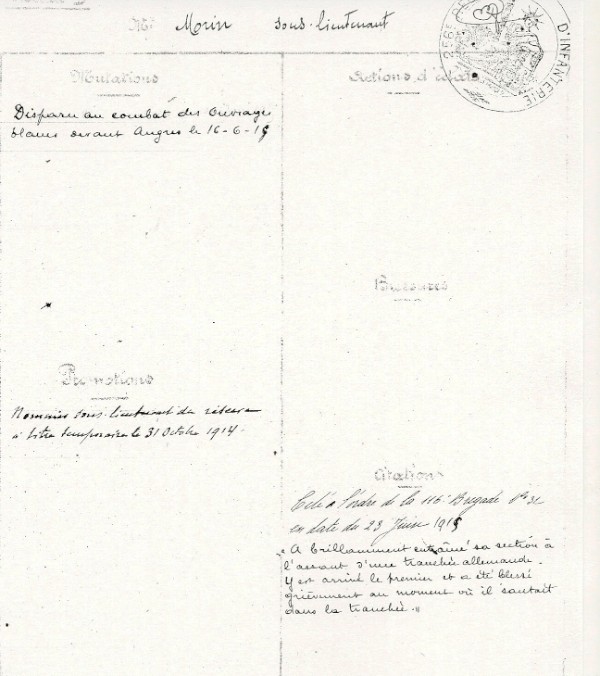 Mr Morin sous-lieutenant
D'INFANTERIE
Mutations
Disparu au combat des Ouvrages
blancs devant Angres le 16-6-15
Actions d'éclat
Blessures
Promotions
Nommé sous-lieutenant de réserve
à titre temporaire le 31 Octobre 1914.
Citations
Cité à l'ordre de la 116e Brigade No 31
en date du 23 Juin 1915
« A brillamment entraîné sa section à
l'assaut d'une tranchée allemande.
Y est arrivé le premier et a été blessé
grièvement au moment où il sautait
dans la tranchée. »